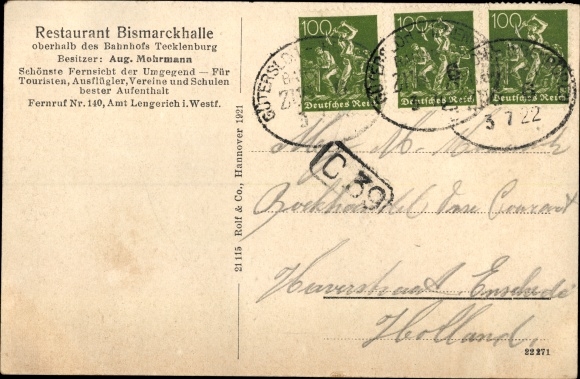 Restaurant Bismarckhalle
oberhalb des Bahnhofs Tecklenburg
Besitzer: Aug. Mohrmann
Schönste Fernsicht der Umgegend — Für
Touristen, Ausflügler, Vereine und Schulen
bester Aufenthalt
Fernruf Nr. 140, Amt Lengerich i. Westf.
21115 Rolf & Co., Hannover 1921
100
Deutsches Reich
100
Deutsches Reich
100
Deutsches Reich
GÜTERSLOH
3 7 22
C 39
M.
Boekhandel
Haverstraat Enschede
Holland
22271